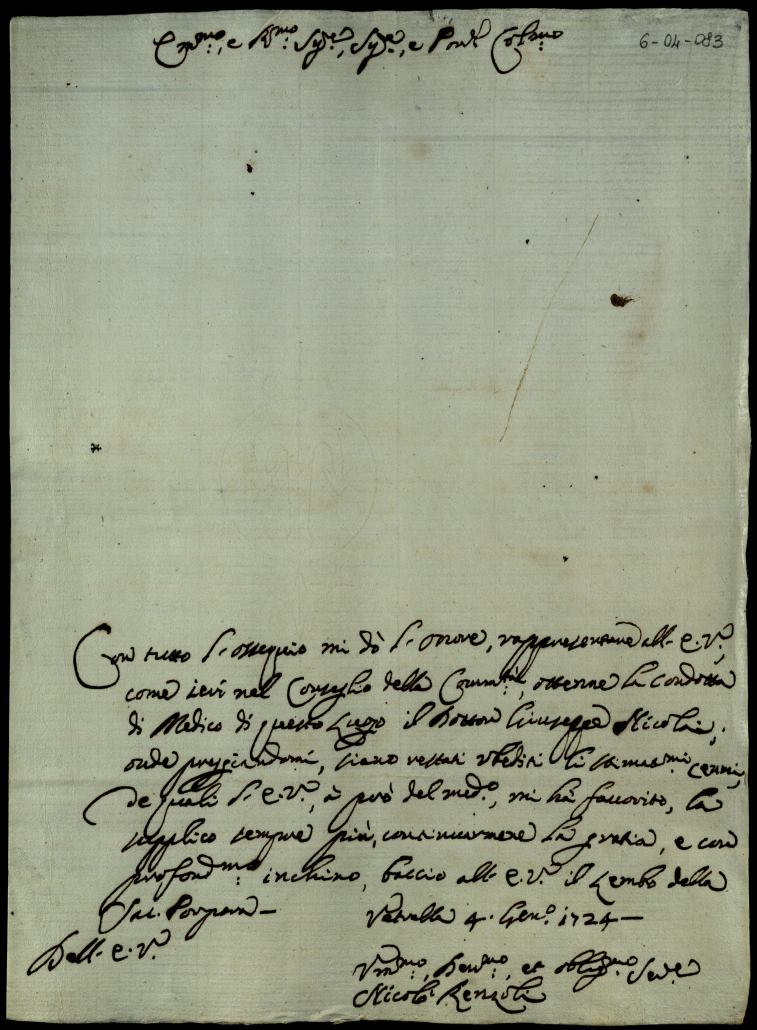 Em.mo, e R.mo Sig.re, Sig.re, e Pad.n Col.mo
6-04-083
Con tutto l'ossequio mi dò l'onore, rappresentare all'E.V.ra,
come ieri nel Conseglio della Commtà, ottenne la Condotta
di Medico di questo Luogo il Dottor Giuseppe Nicolai,
onde preggiandomi, siano restati obediti li stimat.mi cenni,
de quali l'E.V.ra, à prò del med.o, mi hà favorito, la
supplico sempre più, continuarmene la gratia, e con
profond.mo inchino, baccio all'E.V.ra il Lembo della
Sac. Porpora—
Vetralla 4. Gen.o 1724—
Dell'E.V.ra
Um.mo, Dev.mo, et oblig.mo Ser.re
Nicolò Renzoli